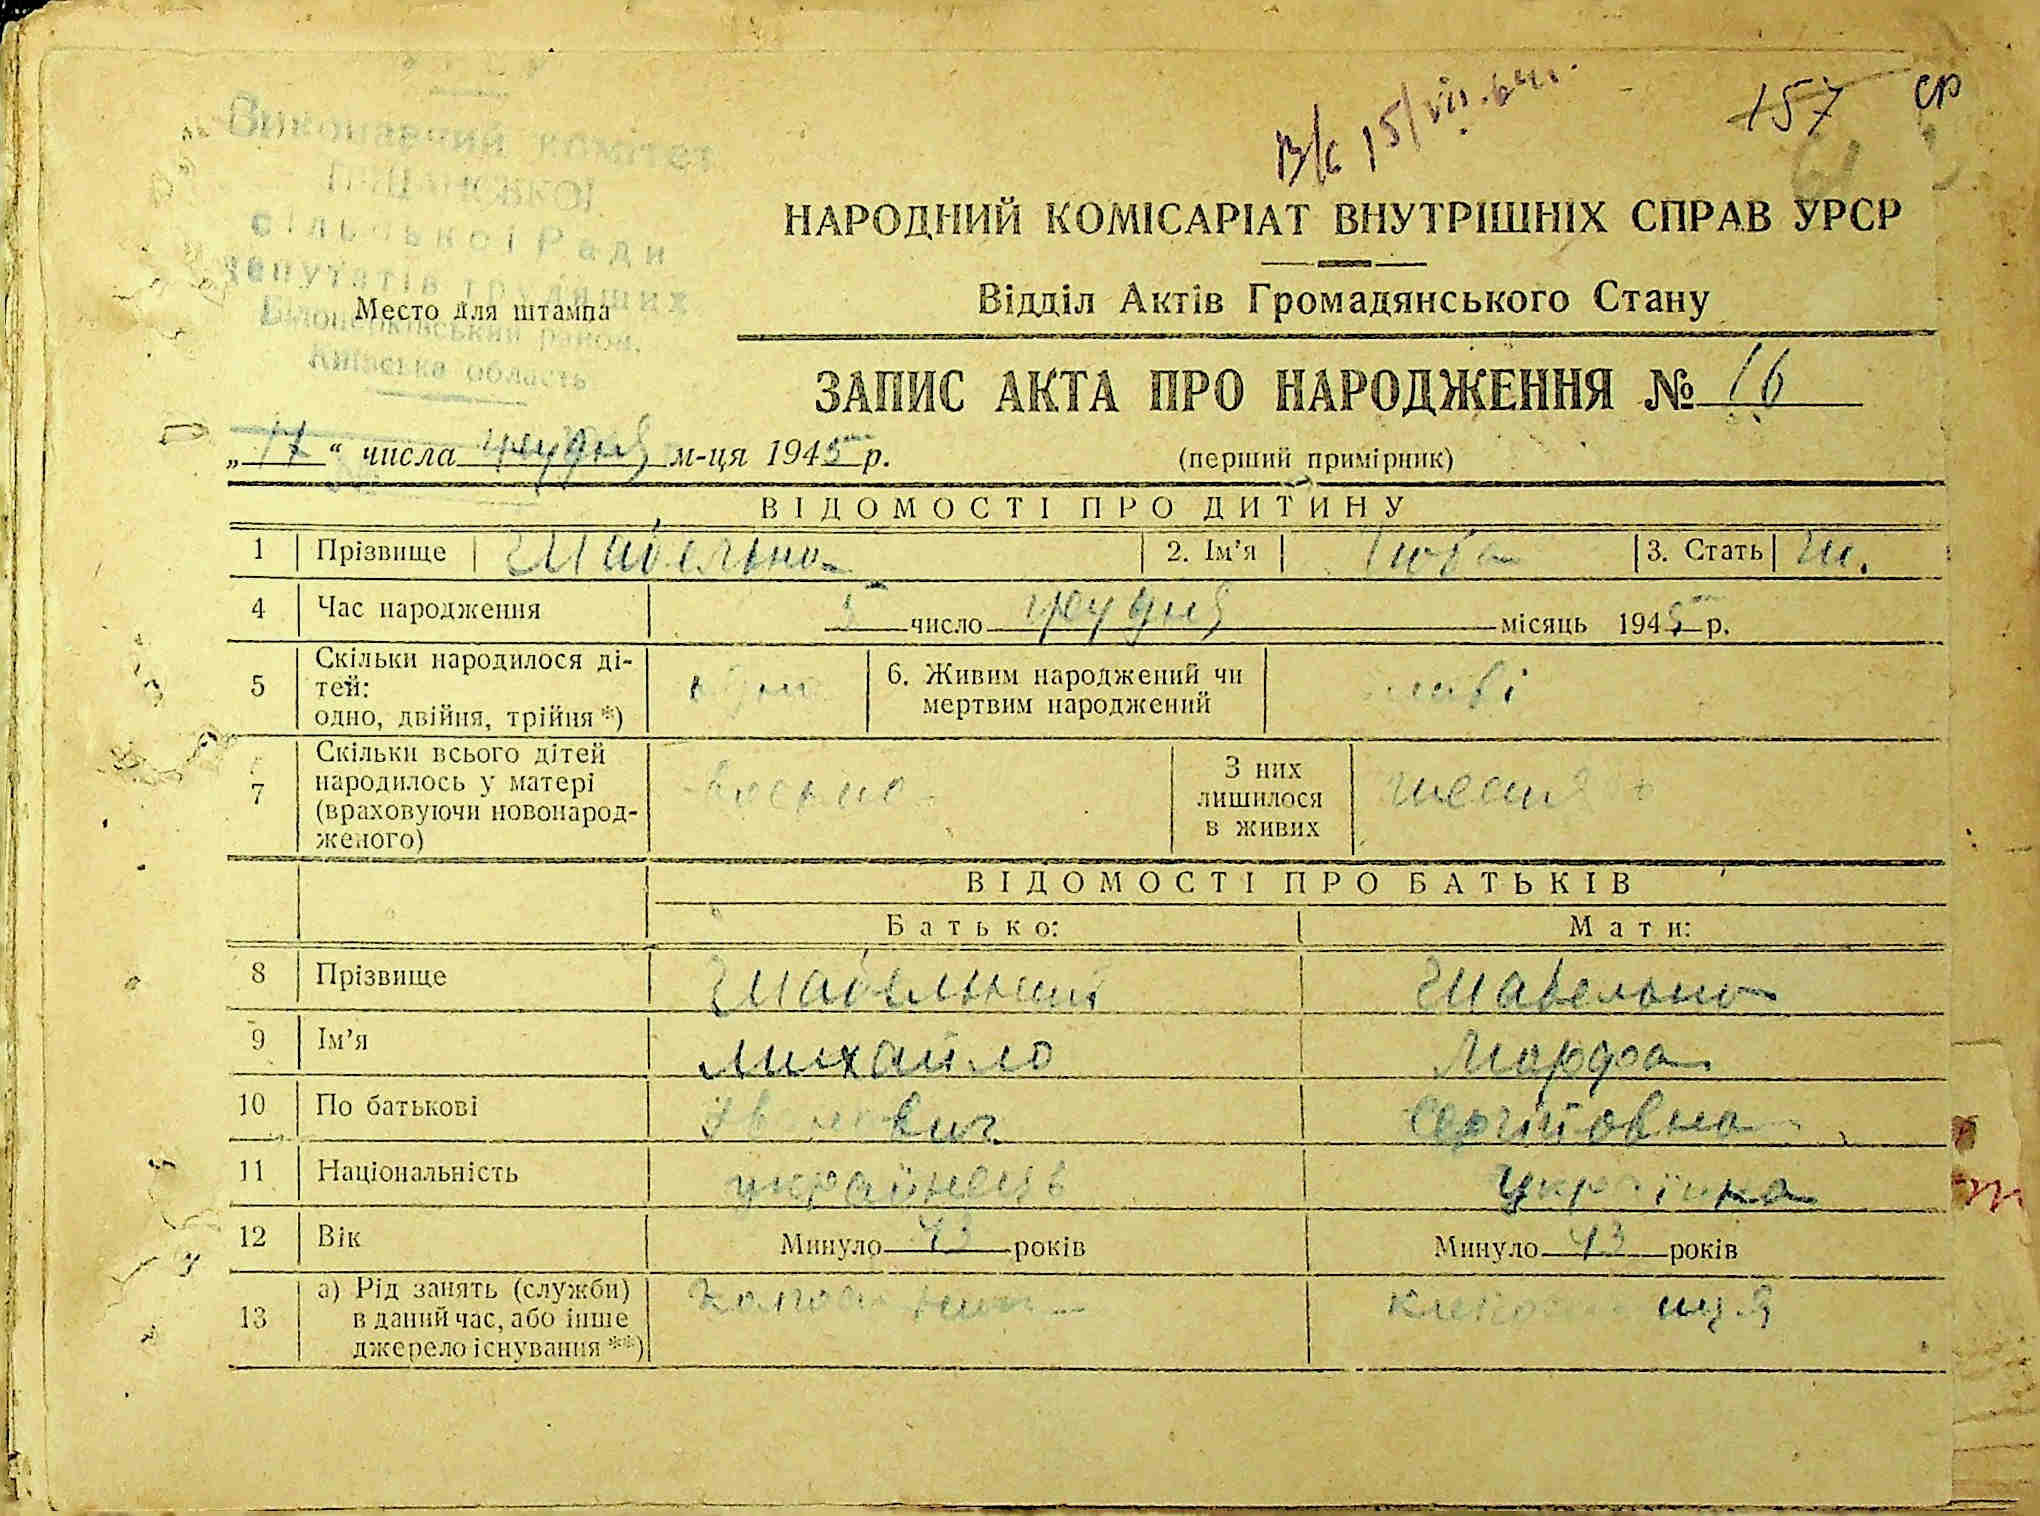 Виконавчий комітет
сільської Ради
депутатів трудящих
Білоцерківський район,
Київська область
Место для штампа
В/с 15/VII.64.
157 ср
61
НАРОДНИЙ КОМІСАРІАТ ВНУТРІШНІХ СПРАВ УРСР
Відділ Актів Громадянського Стану
ЗАПИС АКТА ПРО НАРОДЖЕННЯ № 16
„17“ числа грудня м-ця 1945 р.
(перший примірник)
ВІДОМОСТІ ПРО ДИТИНУ
1 Прізвище Шабельна 2. Ім’я Люба 3. Стать
4 Час народження 5 число грудня місяць 1945 р.
5 Скільки народилося ді-
тей:
одно, двійня, трійня *) одно
6. Живим народжений чи
мертвим народжений живі
7 Скільки всього дітей
народилось у матері
(враховуючи новонарод-
женого) восьмо
З них
лишилося
в живих шестя
ВІДОМОСТІ ПРО БАТЬКІВ
Батько: Мати:
8 Прізвище Шабельний Шабельна
9 Ім’я Михайло Марфа
10 По батькові Іванович Сергіївна
11 Національність українець Українка
12 Вік Минуло 43 років Минуло 43 років
13 а) Рід занять (служби)
в даний час, або інше
джерело існування **)